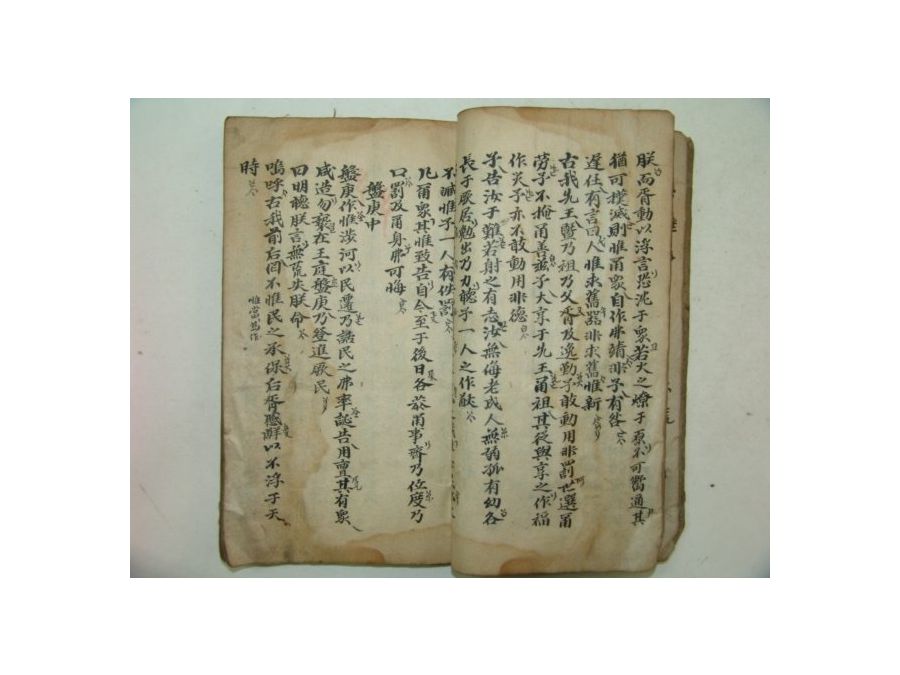 朕而胥動以浮言恐沈于衆若火之燎于原不可嚮邇其
猶可撲滅則惟甬衆自作弗靖非予有咎
遲任有言曰人惟求舊器非求舊惟新
古我先王曁乃祖乃父胥及逸勤予敢動用非罰世選甬
勞予不掩甬善玆予大享于先王甬祖其從與享之作福
作災予亦不敢動用非德
予告汝于難若射之有志汝無侮老成人無弱孤有幼各
長于厥居勉出乃力聽予一人之作猷
不臧惟予一人有佚罰
凡甬衆其惟致告自今至于後日各恭甬事齊乃位度乃
口罰及甬身弗可悔
盤庚中
盤庚作惟涉河以民遷乃話民之弗率誕告用亶其有衆
咸造勿褻在王庭盤庚乃登進厥民
曰明聽朕言無荒失朕命
嗚呼古我前后罔不惟民之承保后胥慼鮮以不浮于天
時